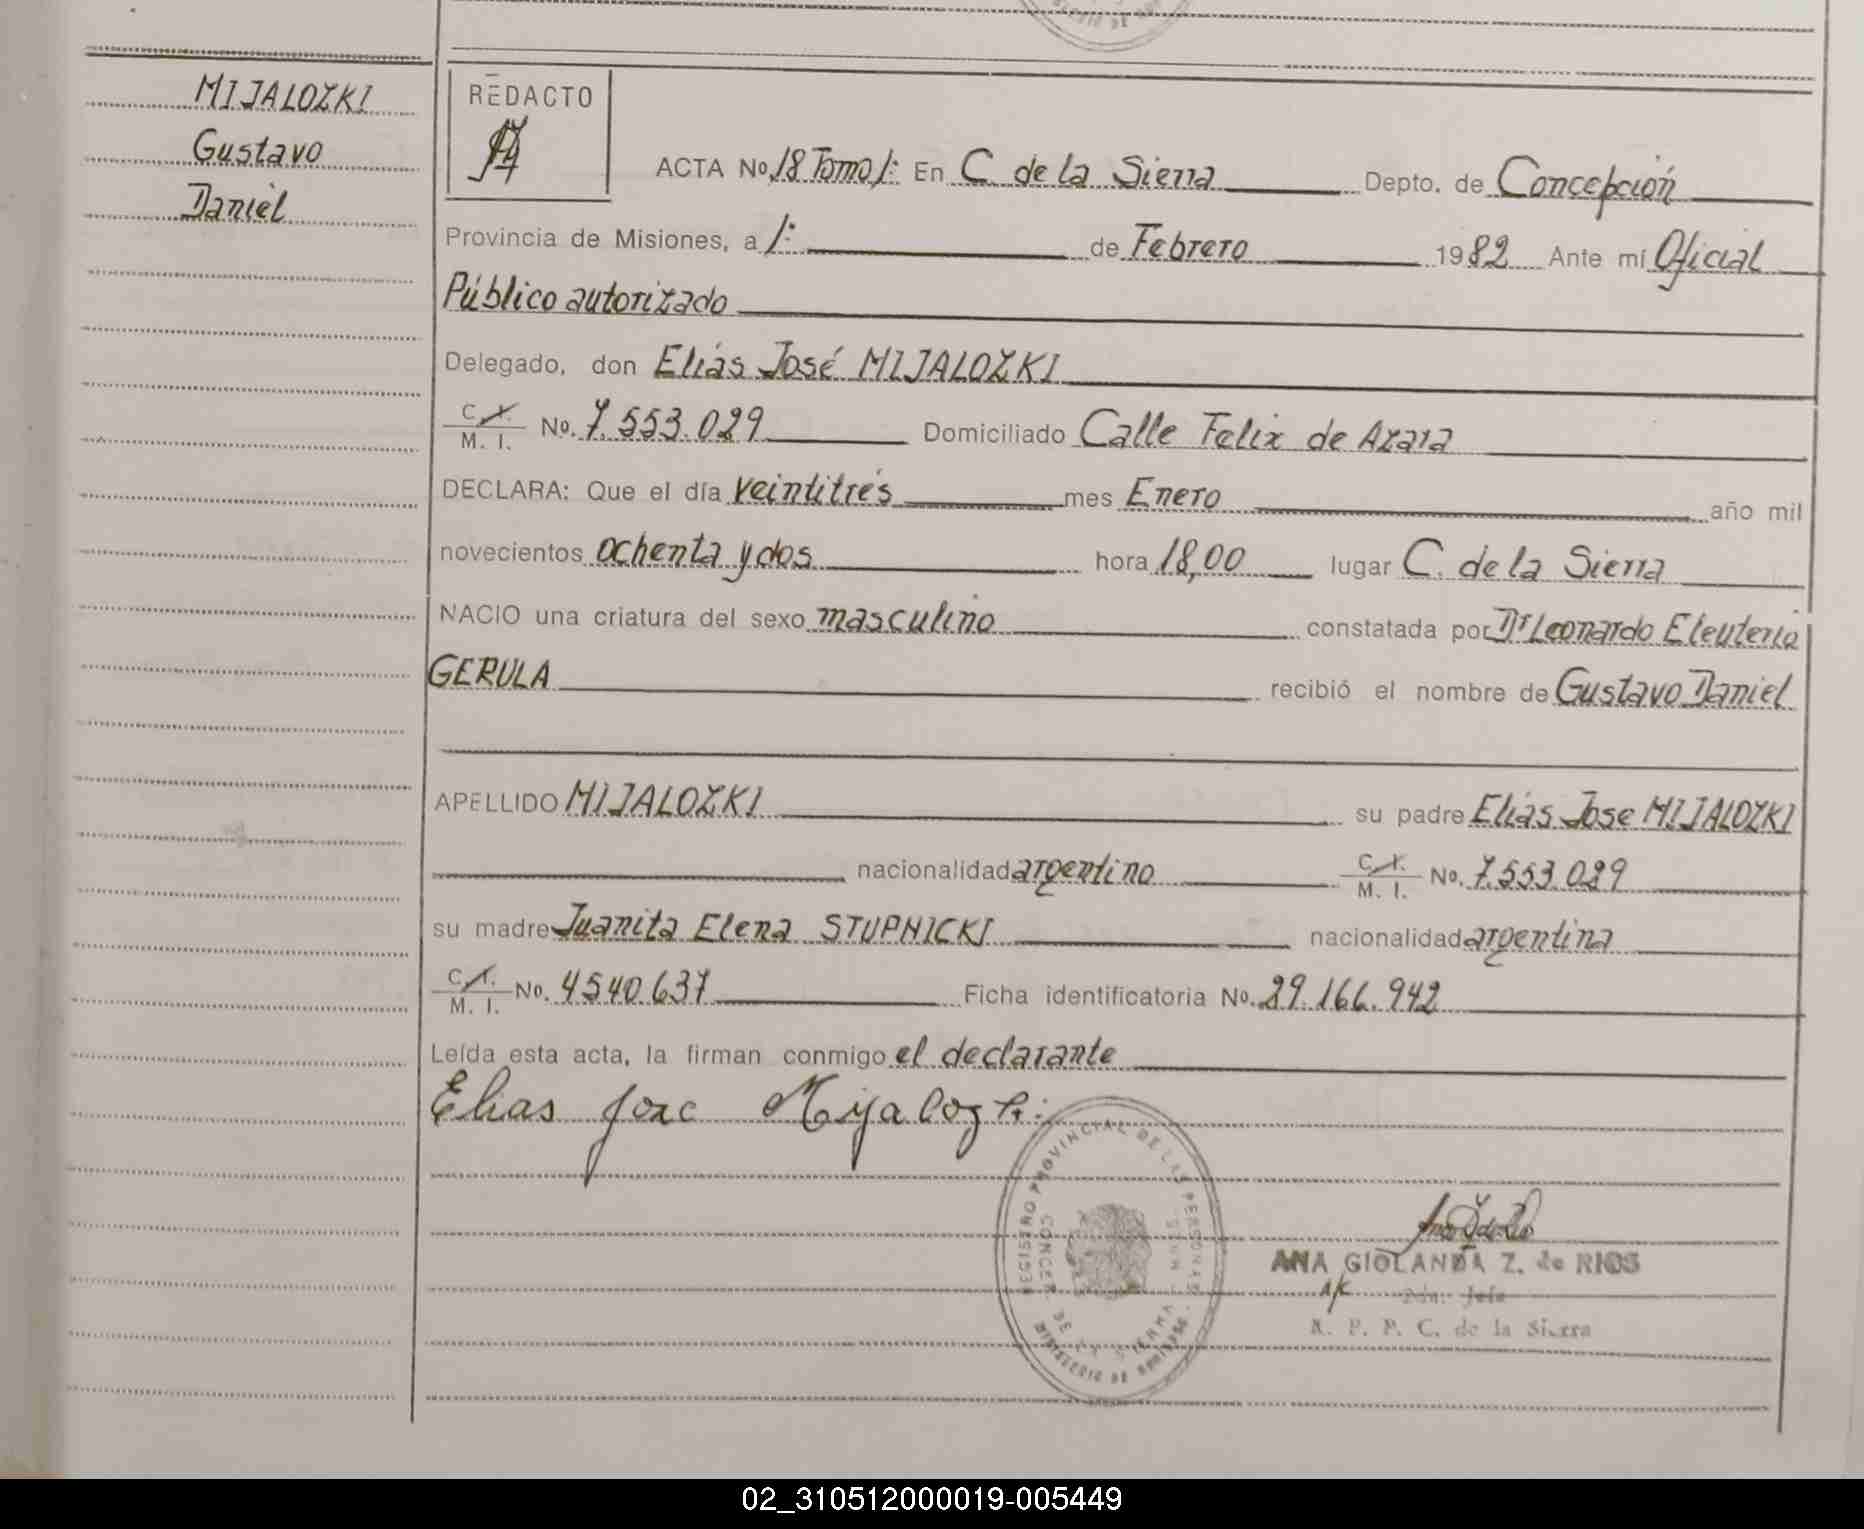 MIJALOZKI
Gustavo
Daniel
REDACTO
ACTA No. 18 Tomo 1: En C. de la Sierra Depto. de Concepción
Provincia de Misiones, a 1: de Febrero 1982 Ante mí Oficial
Público autorizado
Delegado, don Elías José MIJALOZKI
C. I. M. I. No. 7.553.029 Domiciliado Calle Felix de Azara
DECLARA: Que el día veintitrés mes Enero año mil
novecientos ochenta y dos hora 18,00 lugar C. de la Sierra
NACIO una criatura del sexo masculino constatada por Dr Leonardo Eleuterio
GERULA recibió el nombre de Gustavo Daniel
APELLIDO MIJALOZKI su padre Elías Jose MIJALOZKI
nacionalidad argentino C. I. M. I. No. 7.553.029
su madre Juanita Elena STUPNICKI nacionalidad argentina
C. I. M. I. No. 4540.637 Ficha identificatoria No. 29.166.942
Leída esta acta, la firman conmigo el declarante
Elias Jose Mijalozki
REGISTRO PROVINCIAL DE LAS PERSONAS
CONCEPCION DE LA SIERRA
ANA GIOLANDA Z. de RIOS
A/C 2da. Jefe
R. P. P. C. de la Sierra
02_310512000019-005449